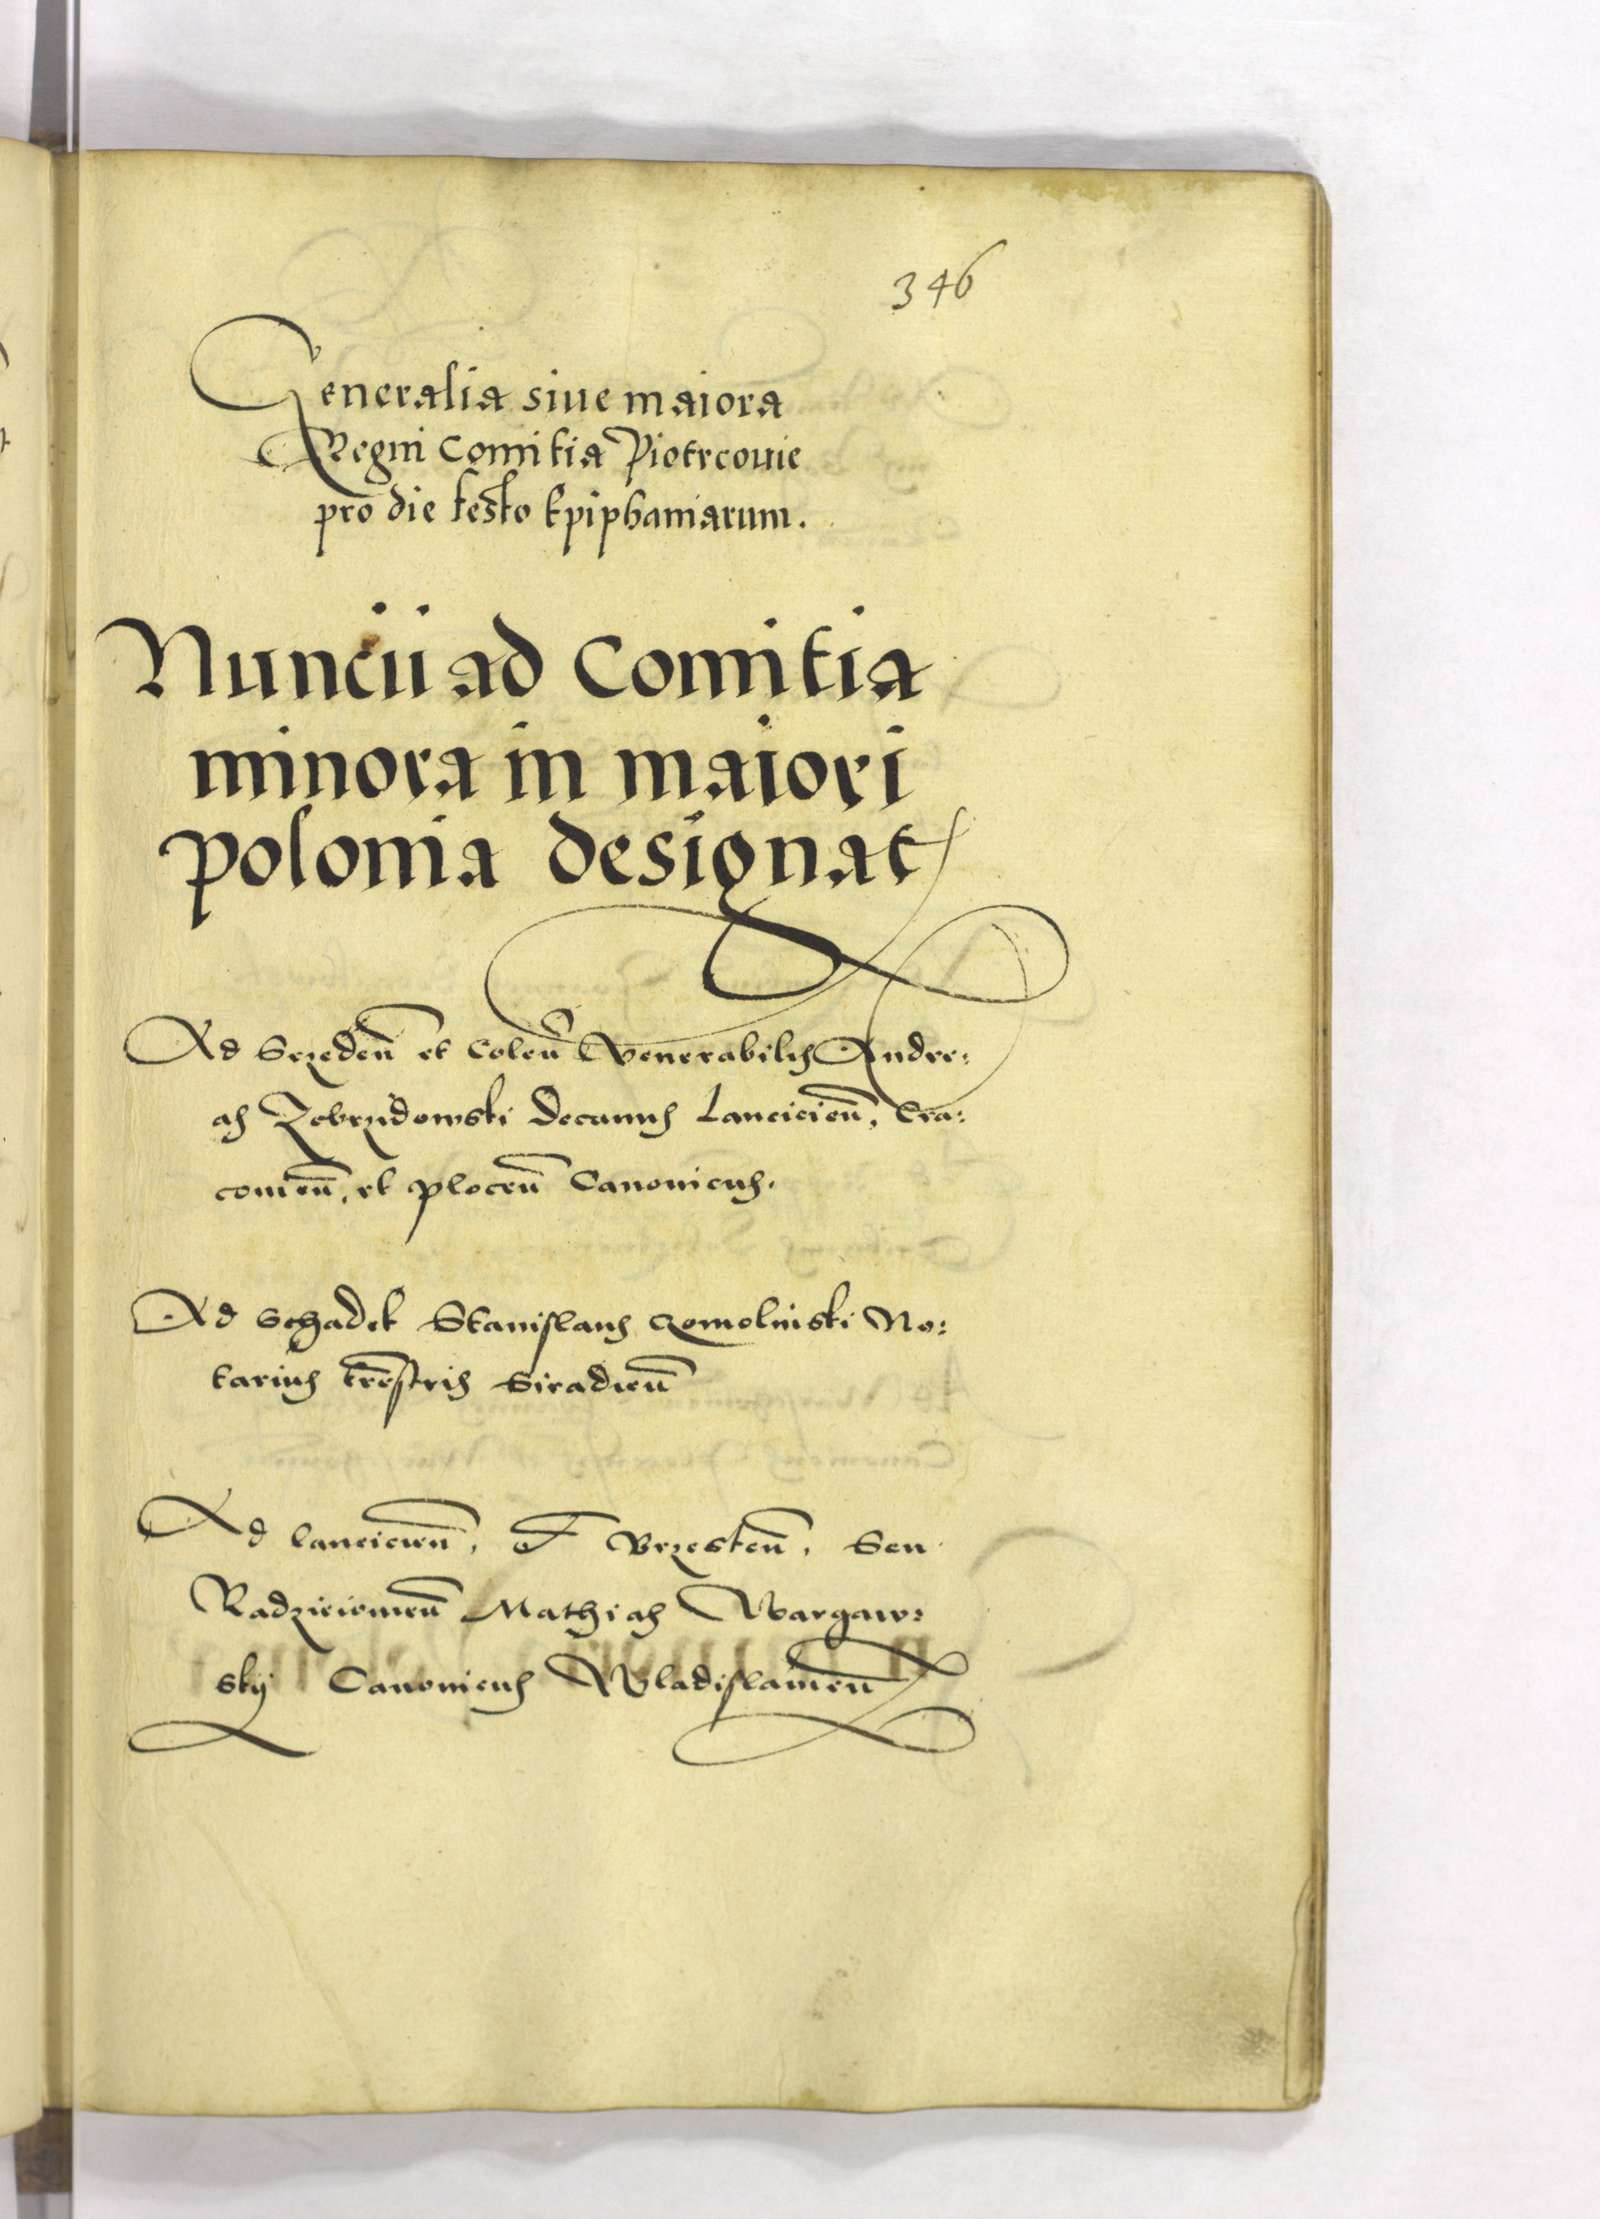 346
Generalia siue maiora
Regni Comitia Piotrcouie
pro die festo Epiphaniarum.
Nuncii ad Comitia
minora in maiori
polonia designat
Ad Srzeden̄ et Colen̄ Venerabilis Andre:
as Zebrzidowski Decanus Lancicien̄, Cra:
couien̄, et plocen̄ Canonicus.
Ad Schadek Stanislaus Zomolinski No:
tarius tr̄estris Siradien̄
Ad lancicien̄, Et Brzesten̄, Seu
Radzieiouien̄ Mathias Wargaw:
skÿ Canonicus Wladislauien̄